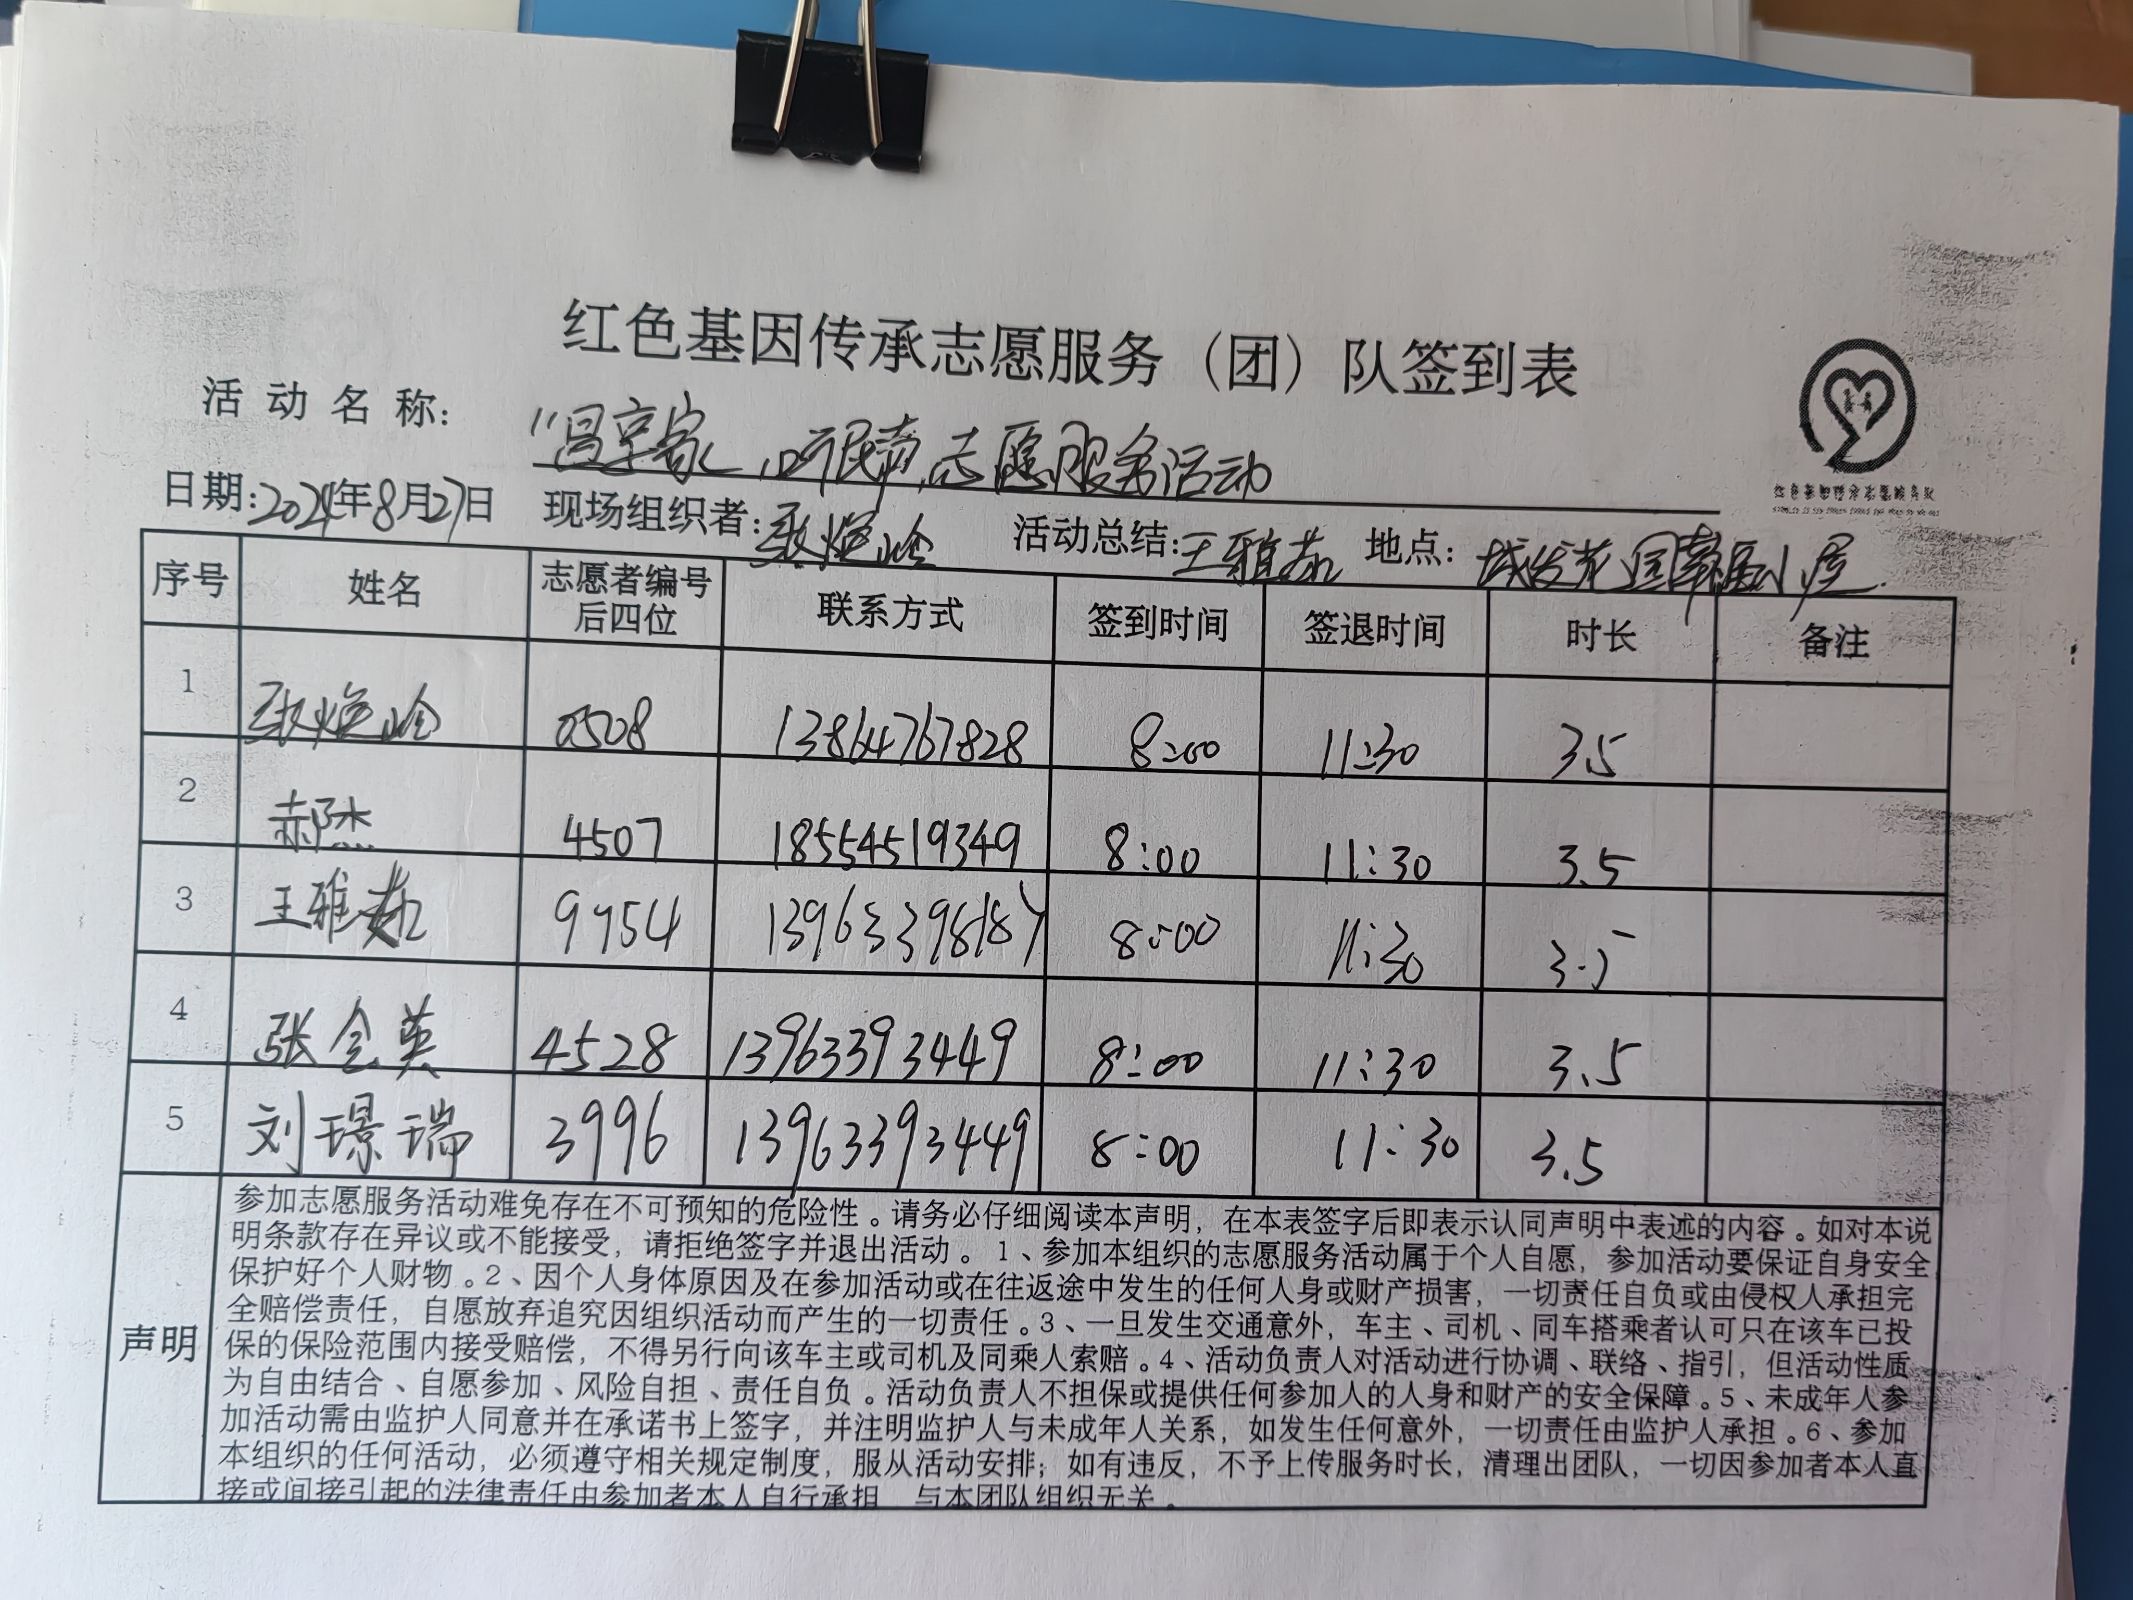 红色基因传承志愿服务（团）队签到表
活动名称： "昌享家，听民声"志愿服务活动
日期：2024年8月27日 现场组织者： 活动总结：王雅茹 地点：
序号 姓名 志愿者编号后四位 联系方式 签到时间 签退时间 时长 备注
1 0508 13864767828 8:00 11:30 3.5
2 郝杰 4507 18554519349 8:00 11:30 3.5
3 王雅茹 9954 13963398187 8:00 11:30 3.5
4 张金英 4528 13963393449 8:00 11:30 3.5
5 刘璟瑞 3996 13963393449 8:00 11:30 3.5
声明
参加志愿服务活动难免存在不可预知的危险性。请务必仔细阅读本声明，在本表签字后即表示认同声明中表述的内容。如对本说
明条款存在异议或不能接受，请拒绝签字并退出活动。1、参加本组织的志愿服务活动属于个人自愿，参加活动要保证自身安全
保护好个人财物。2、因个人身体原因及在参加活动或在往返途中发生的任何人身或财产损害，一切责任自负或由侵权人承担完
全赔偿责任，自愿放弃追究因组织活动而产生的一切责任。3、一旦发生交通意外，车主、司机、同车搭乘者认可只在该车已投
保的保险范围内接受赔偿，不得另行向该车主或司机及同乘人索赔。4、活动负责人对活动进行协调、联络、指引，但活动性质
为自由结合、自愿参加、风险自担、责任自负。活动负责人不担保或提供任何参加人的人身和财产的安全保障。5、未成年人参
加活动需由监护人同意并在承诺书上签字，并注明监护人与未成年人关系，如发生任何意外，一切责任由监护人承担。6、参加
本组织的任何活动，必须遵守相关规定制度，服从活动安排；如有违反，不予上传服务时长，清理出团队，一切因参加者本人直
接或间接引起的法律责任由参加者本人自行承担，与本团队组织无关。